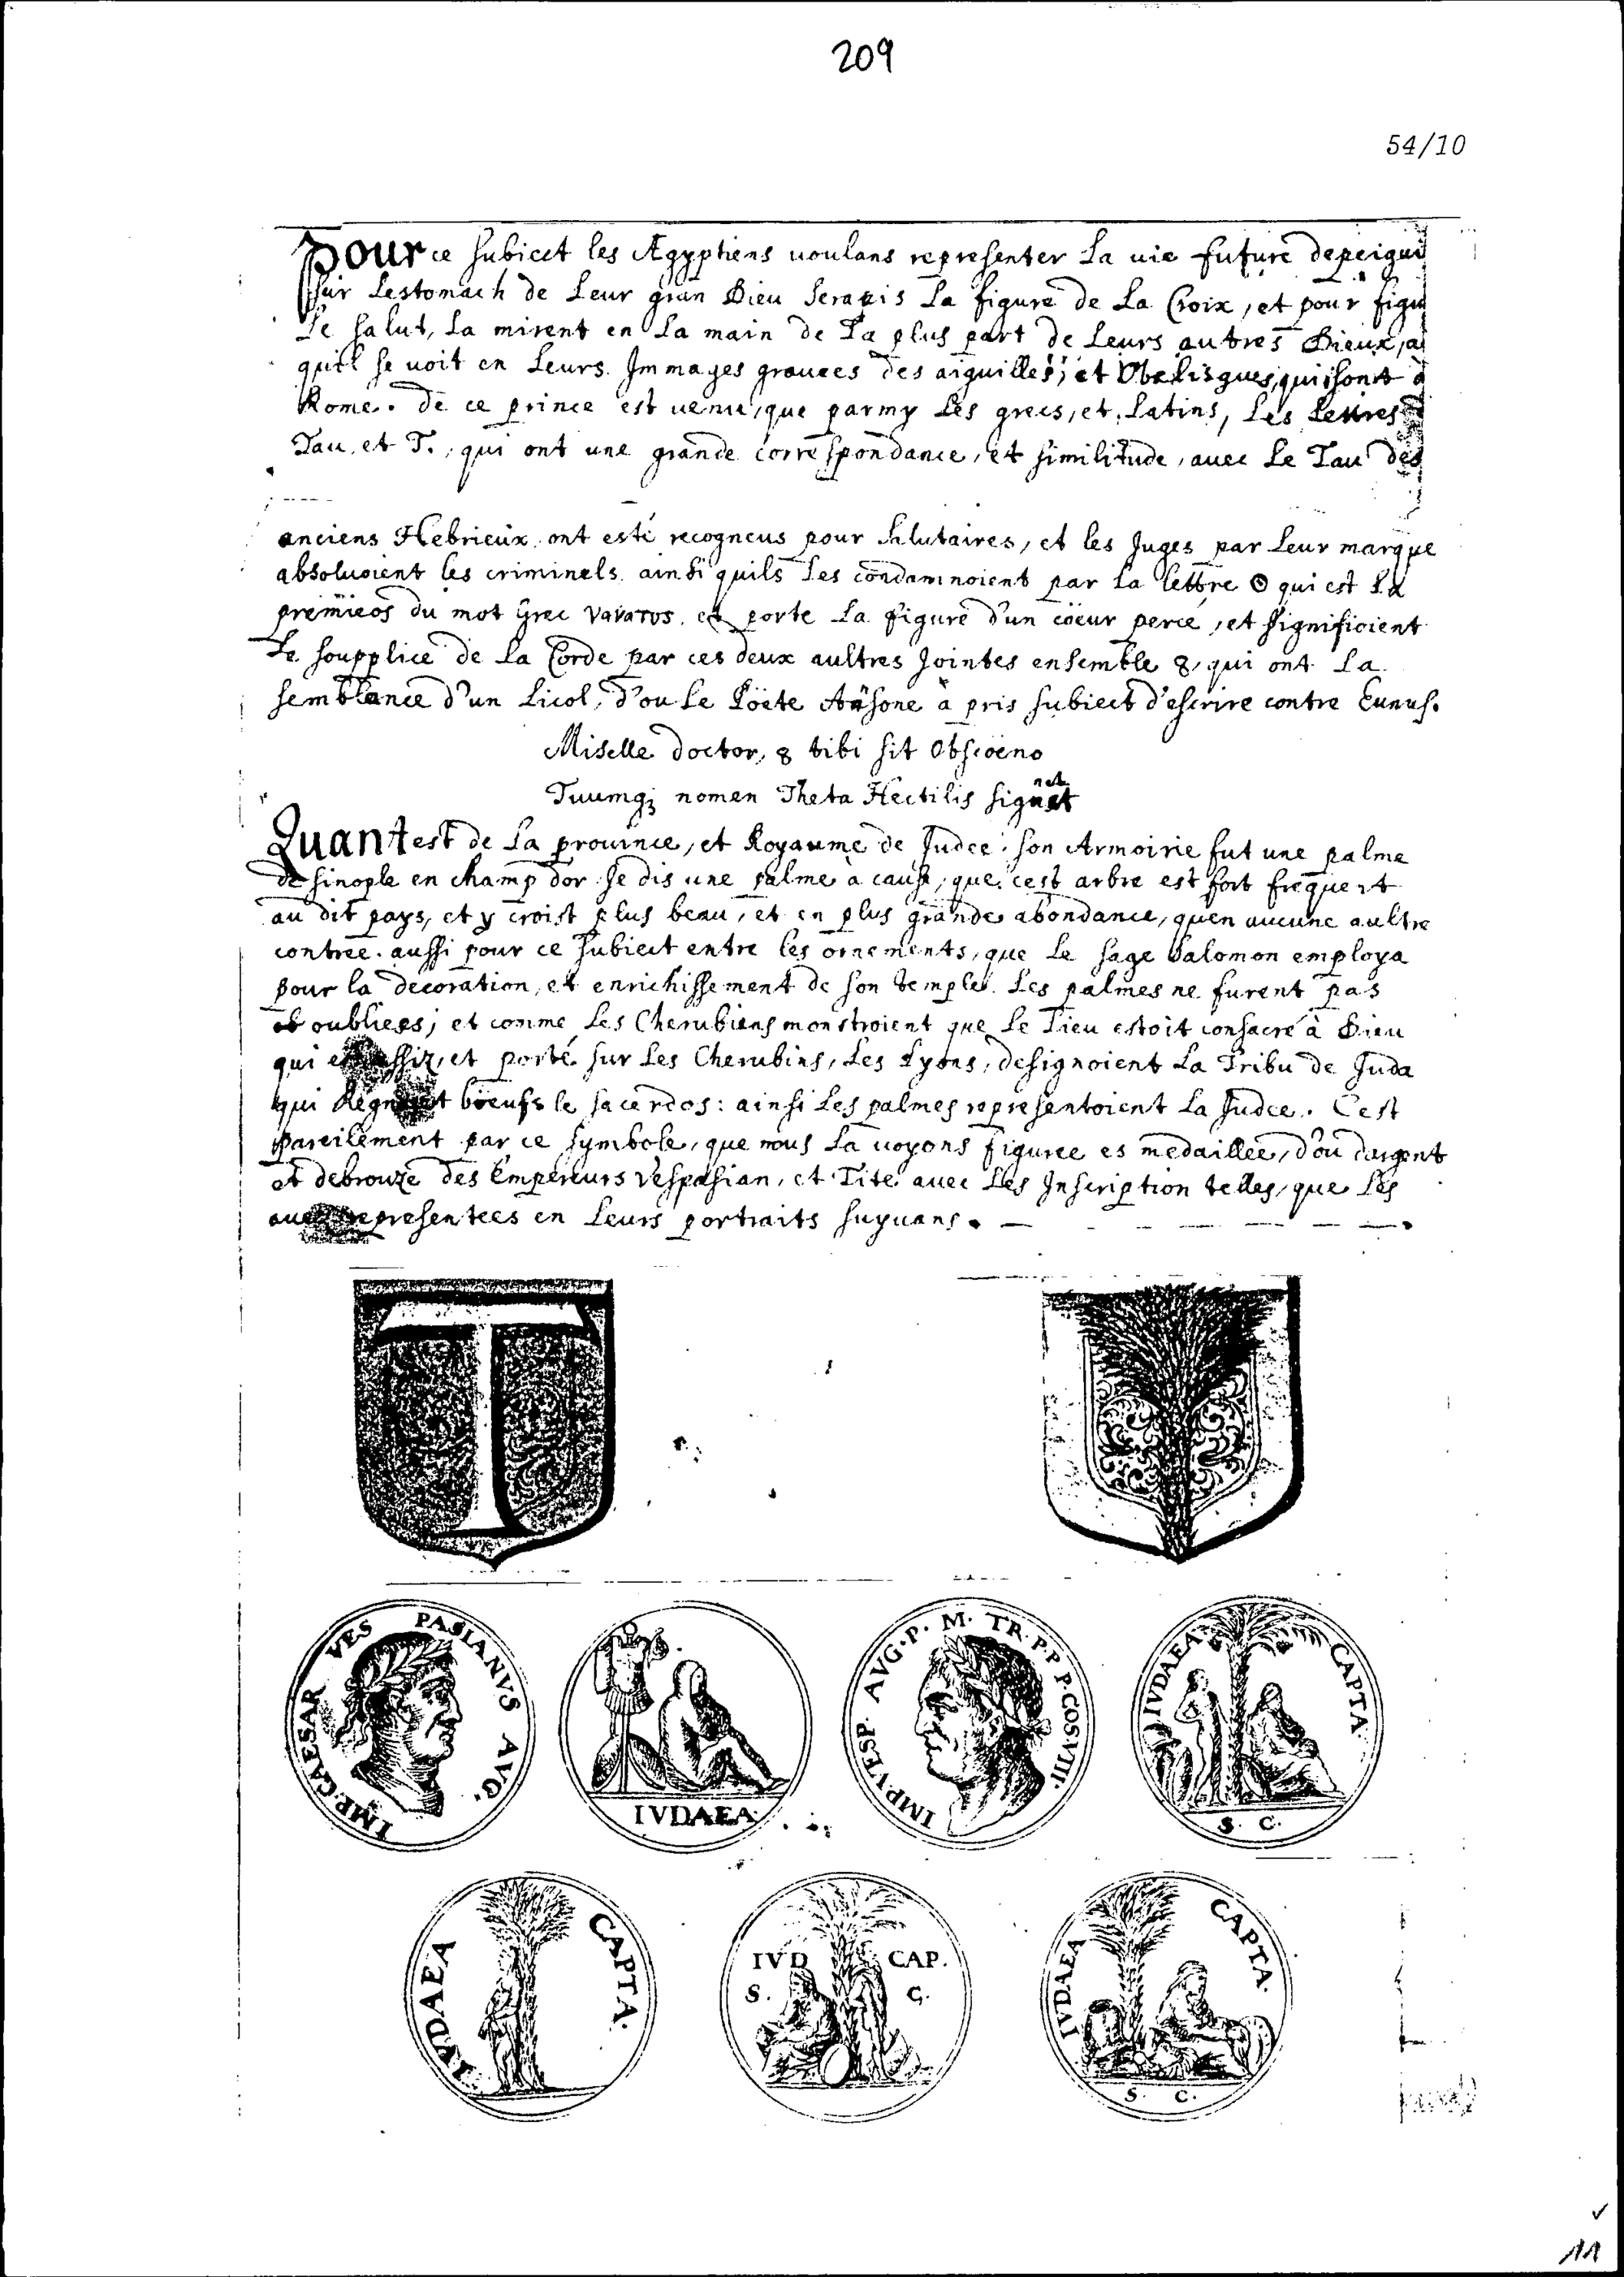 209
54/10
Pour ce subiect les Ægyptiens uoulans representer La uie future depeigni
sur Lestomach de Leur gran Dieu Serapis La figure de La Croix, et pour figu
Le salut, La mirent en La main de La plus part de Leurs autres Dieux, a
quil se uoit en Leurs Immages grauees des aiguilles, et Obelisques, qui sont a
Rome. de ce prince est uenu, que parmy Les grecs, et Latins, Les Lettres
Tau, et T., qui ont une grande correspondance, et similitude, auec Le Tau des
anciens Hebrieux, ont esté recogneus pour salutaires, et les Juges par Leur marque
absoluoient les criminels ainsi quils Les condamnoient par La lettre Θ qui est La
premieos du mot Grec vavaτos. et porte La figure d'un coeur percé, et signifioient
Le soupplice de La Corde par ces deux aultres Jointes ensemble 8, qui ont La
semblance d'un Licol, d'ou Le Poëte Ausone a pris subiect d'escrire contre Eunus.
Miselle doctor, 8 tibi sit Obscoeno
Tuumq; nomen Theta Hectilis signet
net
Quant est de La prouince, et Royaume de Judee: son Armoirie fut une palme
de sinople en champ dor. Je dis une palme à cause, que cest arbre est fort frequent
au dit pays, et y croist plus beau, et en plus grande abondance, quen aucune aultre
contree. aussi pour ce subiect entre les ornements, que Le sage Salomon employa
pour la decoration, et enrichissement de son temple. Les palmes ne furent pas
oubliees; et comme Les Cherubiens monstroient que Le Lieu estoit consacré à Dieu
qui assiz, et porté sur Les Cherubins, Les Lyons, designoient La Tribu de Juda
qui boeufs le sacerdos: ainsi Les palmes representoient La Judee. Cest
pareilement par ce symbole, que nous La uoyons figuree es medaillee, d'ou dargent
et debronze des Empereurs Vespasian, et Tite auec Les Inscription telles, que Les
representees en Leurs portraits suyuans.
IMP. CAESAR VES PASIANVS AVG.
IVDAEA
IMP. VESP. AVG. P. M. TR. P. P P. COS VIII.
IVDAEA CAPTA
S. C.
IVDAEA CAPTA.
IVD CAP.
S. C.
IVDAEA CAPTA.
S. C.
11